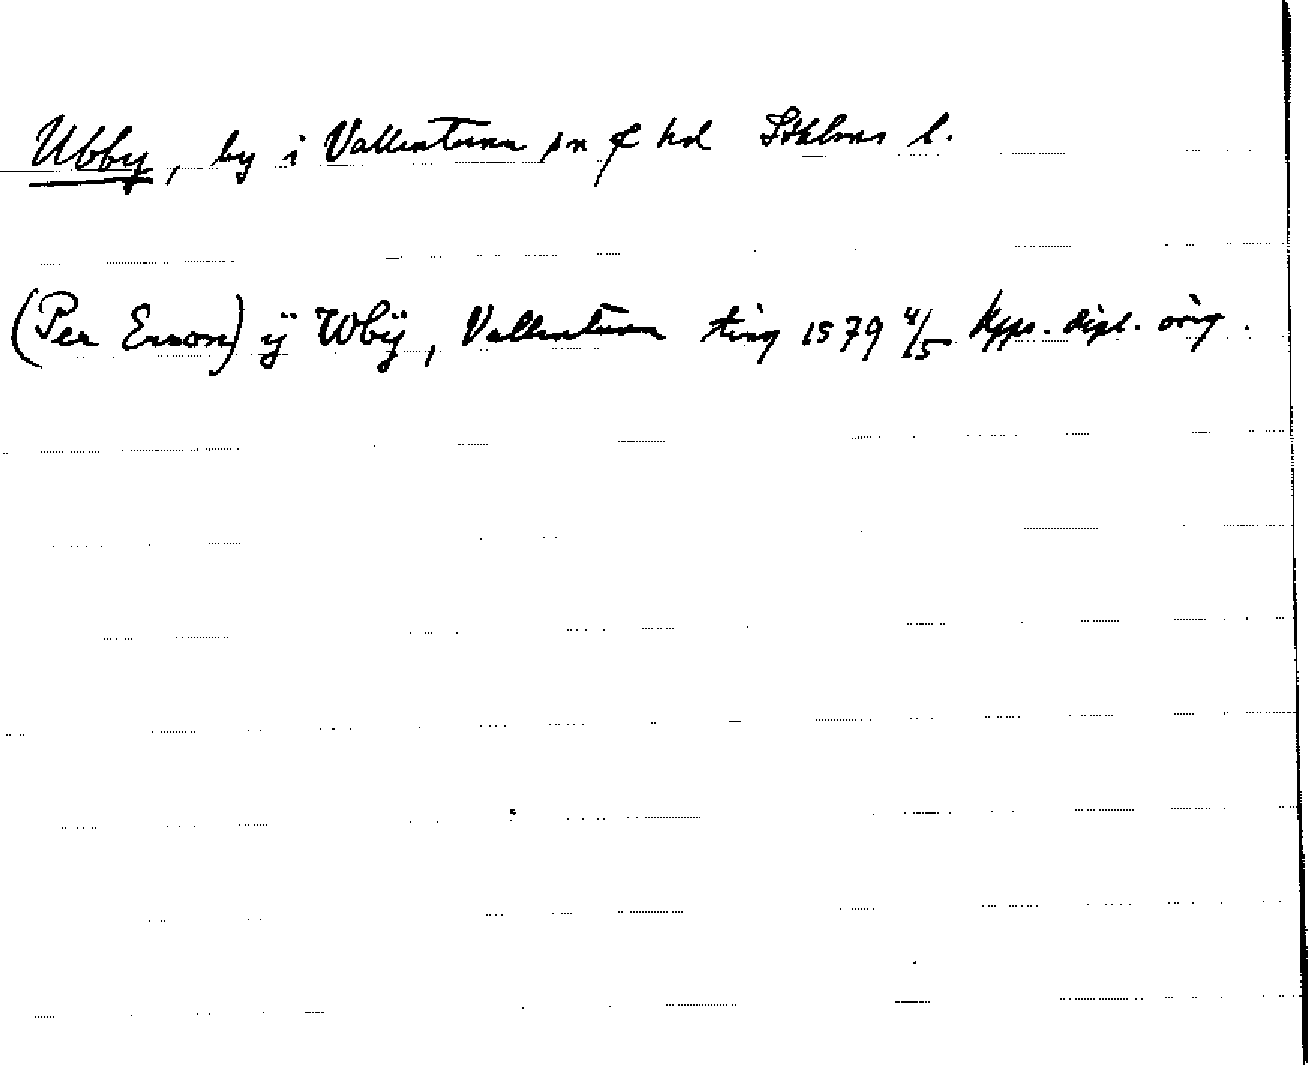 Ubby, by i Vallentuna sn o hd Sthlms l.
(Per Ersson) ÿ Wbÿ, Vallentuna ting 1579 4/5 Upps. dipl. orig.